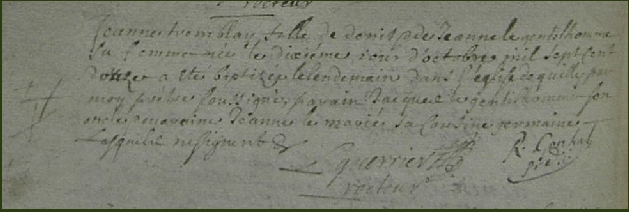 Recteur
Jeanne tremblay fille de denis et de Jeanne le gentilhomme
sa femme née le dixiéme jour d'octobre mil sept cent
douze a ete baptizée le lendemain dans l'eglise de par
moy prétre soussigné, parain Jacque le gentilhomme son
oncle maraine Jeanne le marié sa cousine germaine
Lesquels ne signent &
L guerrier R.
recteur ptre